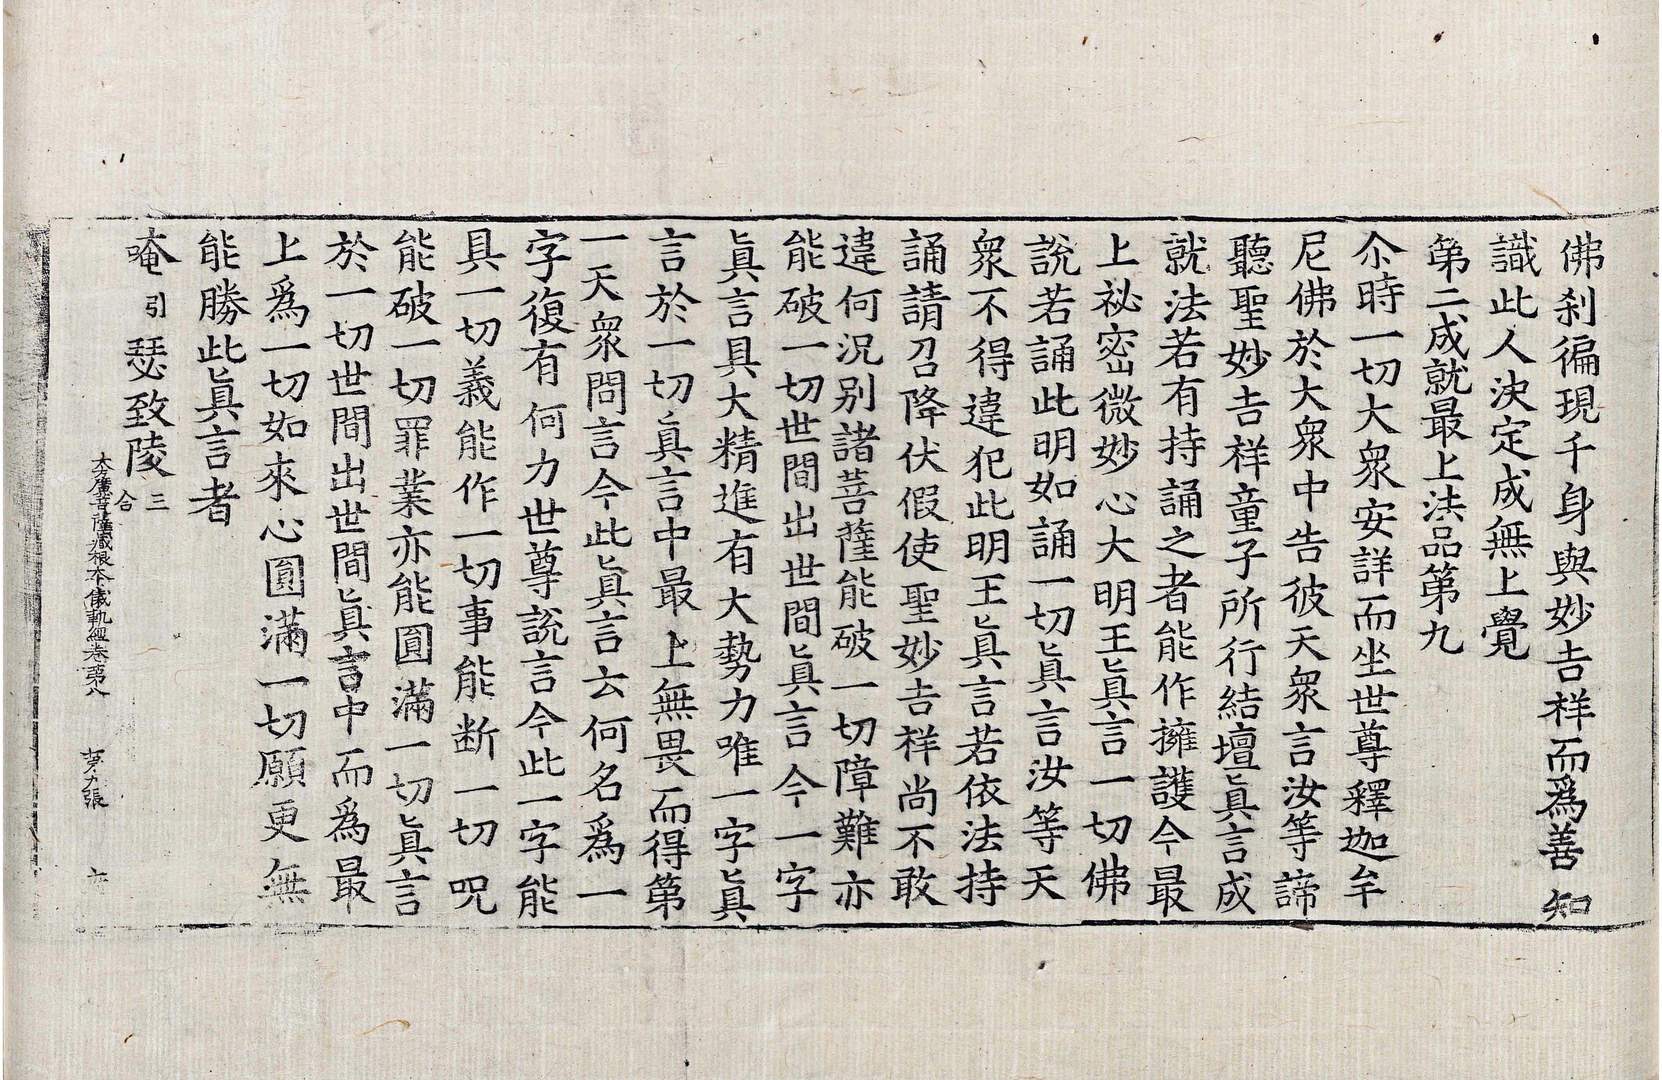 佛刹徧現千身與妙吉祥而爲善知
識此人決定成無上覺
第二成就最上法品第九
尒時一切大衆安詳而坐世尊釋迦牟
尼佛於大衆中告彼天衆言汝等諦
聽聖妙吉祥童子所行結壇眞言成
就法若有持誦之者能作擁護今最
上祕密微妙心大明王眞言一切佛
說若誦此明如誦一切眞言汝等天
衆不得違犯此明王眞言若依法持
誦請召降伏假使聖妙吉祥尚不敢
違何況別諸菩薩能破一切障難亦
能破一切世間出世間眞言今一字
眞言具大精進有大勢力唯一字眞
言於一切眞言中最上無畏而得第
一天衆問言今此眞言云何名爲一
字復有何力世尊說言今此一字能
具一切義能作一切事能断一切呪
能破一切罪業亦能圓滿一切眞言
於一切世間出世間眞言中而爲最
上爲一切如來心圓滿一切願更無
能勝此眞言者
唵引瑟致陵三合
大方廣菩薩藏根本儀軌經卷第八 第九張 六